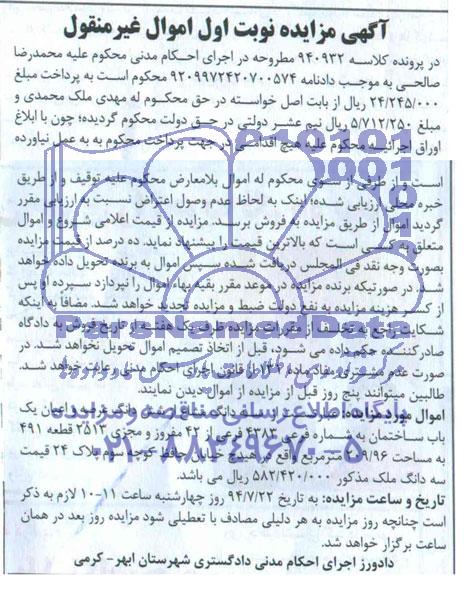 آگهی مزایده نوبت اول اموال غیرمنقول
در پرونده کلاسه ۹۴۰۹۳۲ مطروحه در اجرای احکام مدنی محکوم علیه محمدرضا
صالحی به موجب دادنامه ۹۲۰۹۹۷۲۴۲۰۷۰۰۵۷۴ محکوم است به پرداخت مبلغ
۲۴/۲۴۵/۰۰۰ ریال از بابت اصل خواسته در حق محکوم له مهدی ملک محمدی و
مبلغ ۵/۷۱۲/۲۵۰ ریال نیم عشر دولتی در حق دولت محکوم گردیده؛ چون با ابلاغ
اوراق اجرائیه محکوم علیه هیچ اقدامی در جهت پرداخت محکوم به به عمل نیاورده
است و از طرفی از سوی محکوم له اموال بلامعارض محکوم علیه توقیف و از طریق
خبره محلی ارزیابی شده؛ اینک به لحاظ عدم وصول اعتراض نسبت به ارزیابی مقرر
گردید اموال از طریق مزایده به فروش برسد. مزایده از قیمت اعلامی شروع و اموال
متعلق به کسی است که بالاترین قیمت را پیشنهاد نماید. ده درصد از قیمت مزایده
بصورت وجه نقد فی المجلس دریافت شده سپس اموال به برنده تحویل داده خواهد
شد. در صورتیکه برنده مزایده در موعد مقرر بقیه بهاء اموال را نپردازد سپرده او پس
از کسر هزینه مزایده به نفع دولت ضبط و مزایده تجدید خواهد شد. مضافا به اینکه
شکایت راجع به تخلف از مقررات مزایده ظرف یک هفته از تاریخ فروش به دادگاه
صادرکننده حکم داده می شود، قبل از اتخاذ تصمیم اموال تحویل نخواهد شد. در
صورت عدم مشتری مفاد ماده ۱۳۲ از قانون اجرای احکام مدنی رعایت خواهد شد.
طالبین میتوانند پنج روز قبل از مزایده از اموال دیدن نمایند.
اموال مورد مزایده: سه دانگ مشاع از شش دانگ عرصه و اعیان یک
باب ساختمان به شماره فرعی ۴۳۸۳ فرعی از ۴۲ مفروز و مجزی ۲۵۱۳ قطعه ۴۹۱
به مساحت ۹/۹۶ مترمربع واقع در هیدج خیابان حافظ کوچه سوم پلاک ۲۴ قیمت
سه دانگ ملک مذکور ۵۸۲/۴۲۰/۰۰۰ ریال می باشد.
تاریخ و ساعت مزایده: به تاریخ ۹۴/۷/۲۲ روز چهارشنبه ساعت ۱۱-۱۰ لازم به ذکر
است چنانچه روز مزایده به هر دلیلی مصادف با تعطیلی شود مزایده روز بعد در همان
ساعت برگزار خواهد شد.
دادورز اجرای احکام مدنی دادگستری شهرستان ابهر- کرمی
ParsNamadData
پایگاه اطلاع رسانی
۰۲۱-۸۸۳۴۹۶۷۰-۵